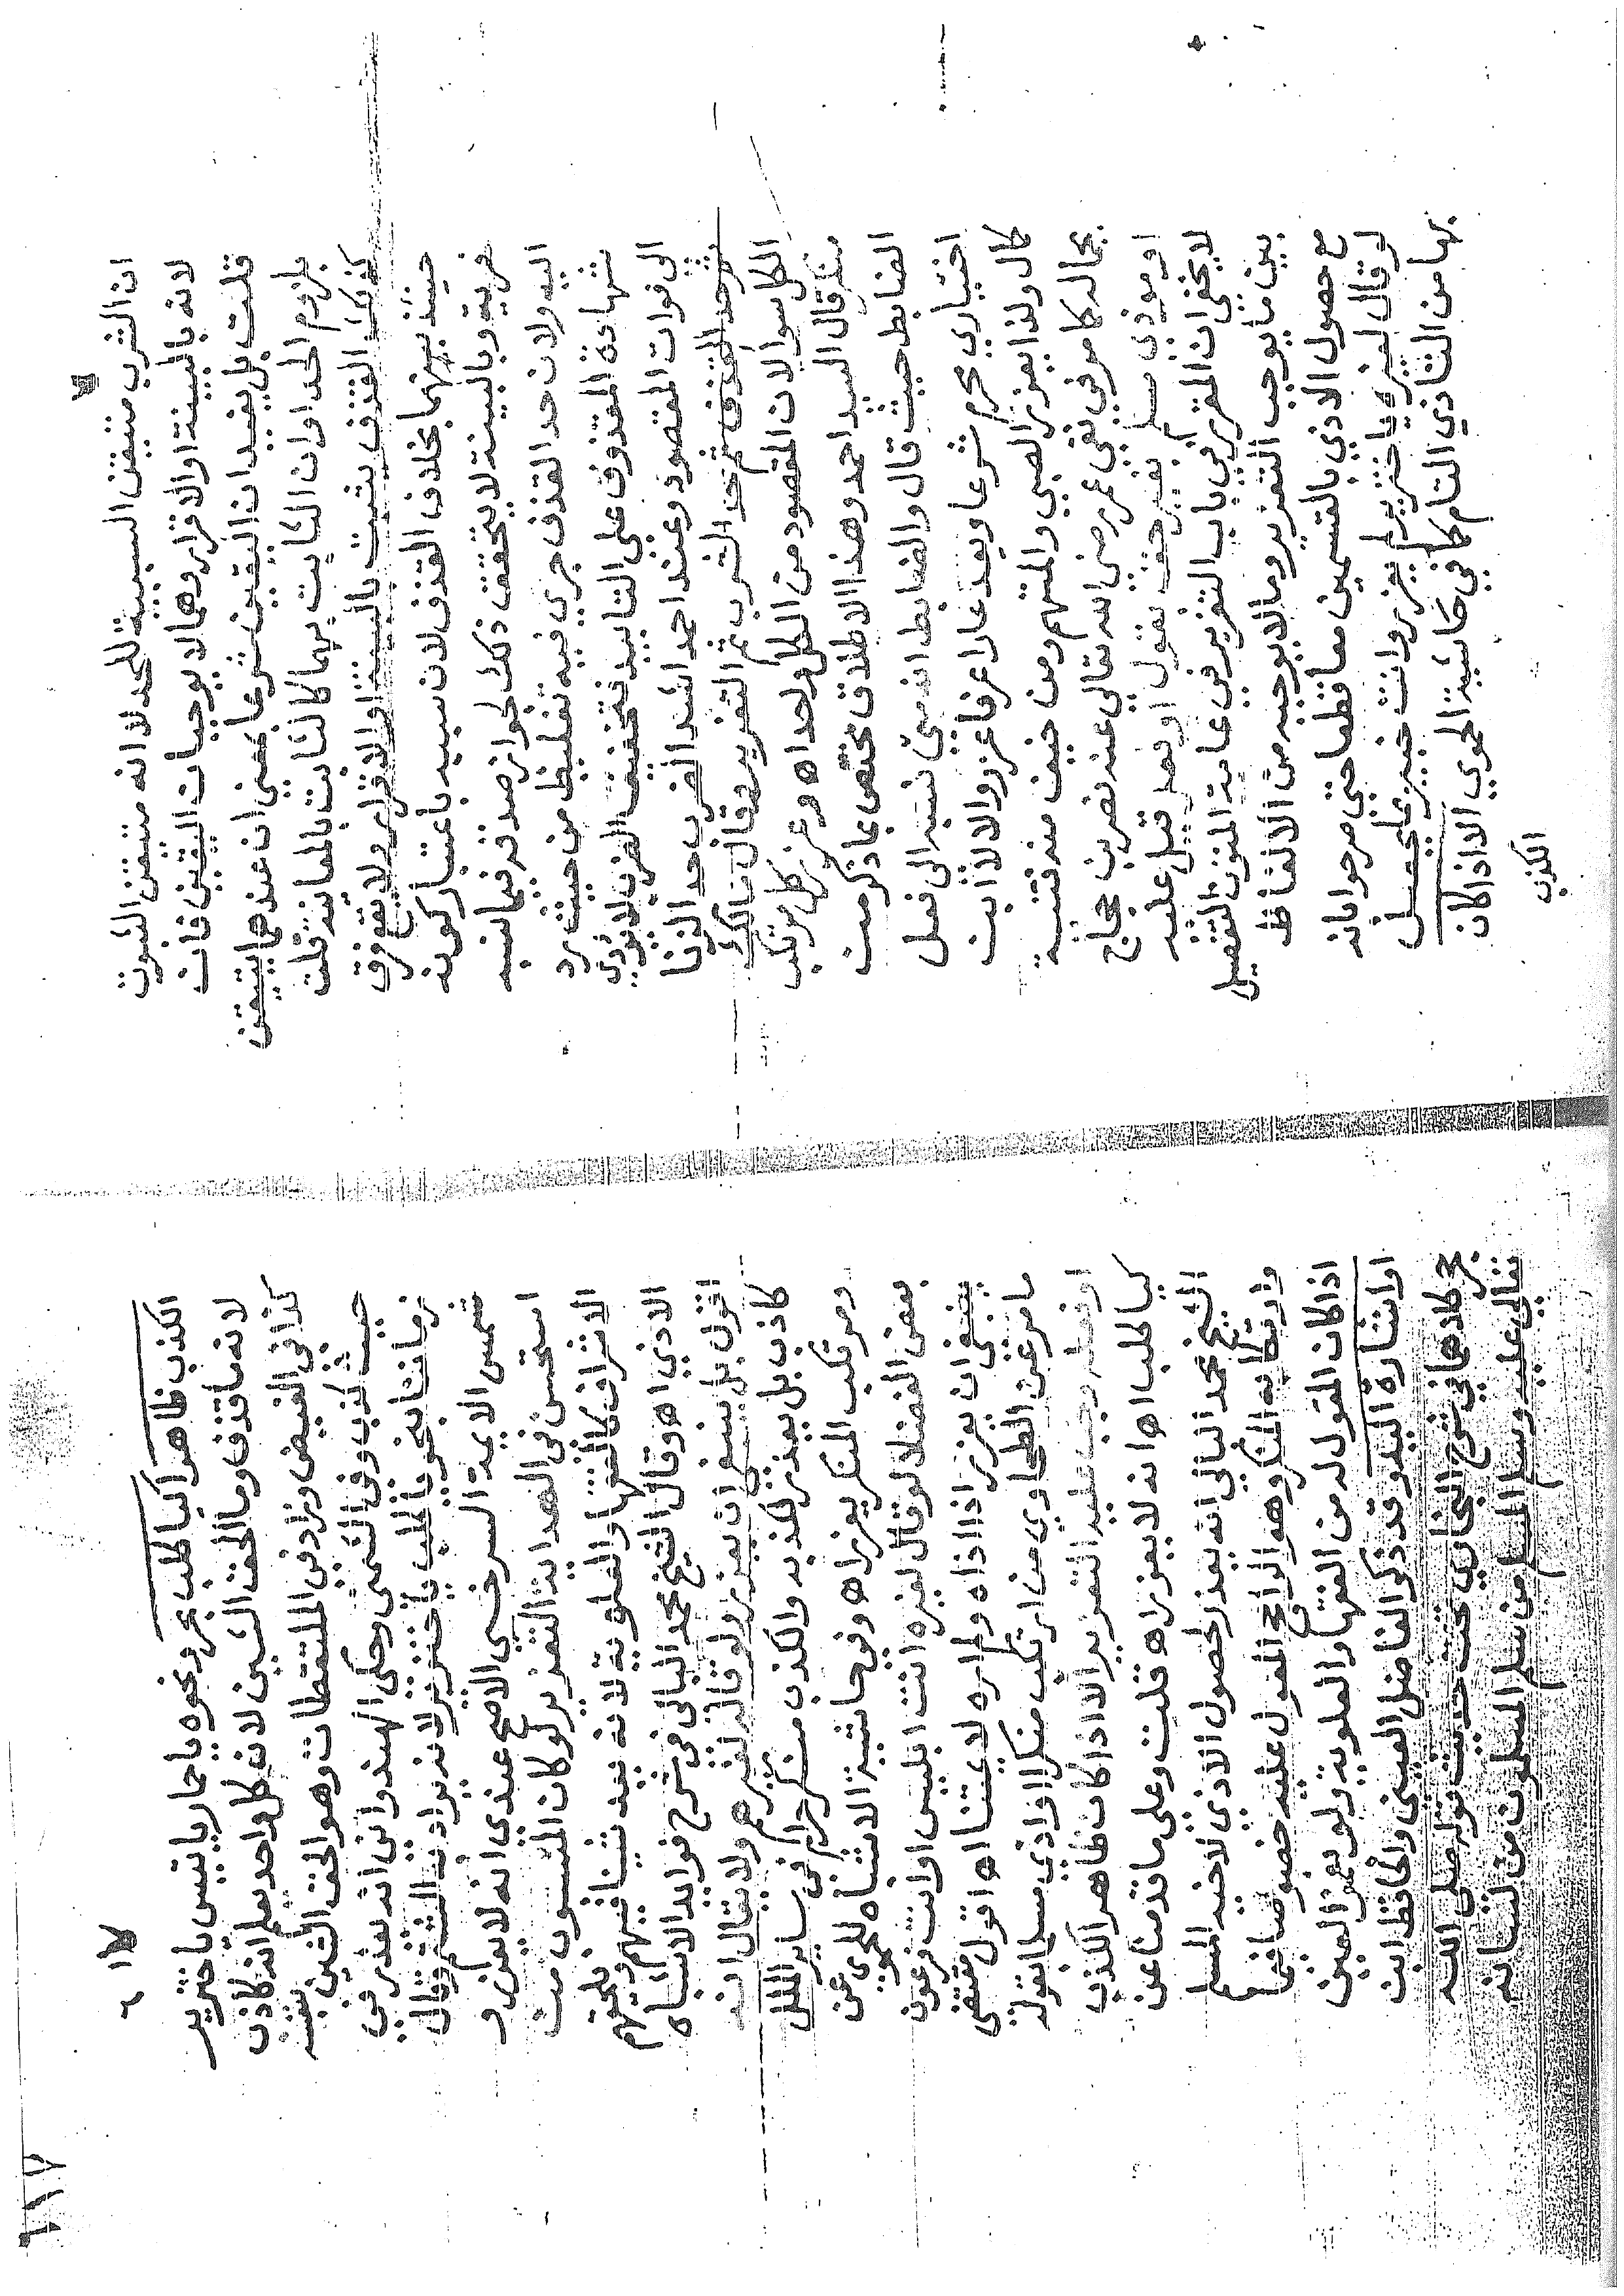 ان الشرب متيقن السببية للحد لانه متيقن الثبوت
لانه بالبينة او الاقرار وهما لا يوجبان اليقين فان
قلت بل يفيدان اليقين شرعا بمعنى ان عندهما يتيقن
بلزوم الحد او ان الثابت بهما كالثابت بالمعاينة قلت
كذلك القذف يثبت بالبينة او الاقرار ولا يقع فرق
حينئذ بينهما بخلاف القذف لان سببه باعتبار كونه
فرية وبالبينة لا يتحقق ذلك لجواز صدقه فيما نسبه
اليه ولان حد القذف جرى فيه تغليظ من حيث رد
شهادة المقذوف على التابيد فتخفيف الضرب لا يؤدي
الى فوات المقصود وعند احمد اشد الضرب حد الزنا
ثم حد القذف ثم حد الشرب ثم التعزير وقال مالك
الكل سوا لان المقصود من الكل واحد اه وعزر كل مرتكب
منكر قال السيد احمد وهذا الاطلاق مختص بما ذكره من
الضابط حيث قال والضابط انه متى نسبه الى فعل
اختياري محرم شرعا ويعد عارا عرفا عزر والا لا ابن
كمال ولذا يعزر الصبي والمتهم ومن خيف منه فتنة
بجماله كما مر في نفي عمر رضي الله تعالى عنه نصر بن حجاج
او موذي مسلم بغير حق بقول او فعل قيل عليه
لا يخفى ان المقرر في باب التعزير في عامة المتون التفصيل
بين ما يوجب التعزير وما لا يوجبه من الالفاظ
مع حصول الاذى بالقسمين معا قطعا حتى صرحوا بانه
لو قال لغيره يا خنزير لم يعزر وانت خبير على حصل
بها من التاذي التام كما في حاشية الحموي الا اذا كان
الكذب
١٨
الكذب ظاهرا كيا كلب بحر ونحوه يا حمار يا تيس يا خنزير
لانه ما قذف وما الحق الشين لان كل واحد يعلم انه كاذب
كذا في الفيض وزاد في الملتقطات وهو الحق الشين بنفسه
حيث كذب وفي الشمني وحكى الهندواني انه يعذر في
زماننا بنحو يا كلب يا خنزير لانه يراد به الشتم وقال
شمس الايمة السرخسي الاصح عندي انه لا يعزر و
استحسن في الهداية التعزير لو كان المنسوب من
الاشراف كالفقها والعلوية لانه يعد شينا فيهم ويلحقهم
الاذى اه وقال الشيخ محمد البالي في شرح فوايد الاشباه
اقول بل ينبغي ان يعزر ولو قاله لغيرهم ولا يقال انه
كاذب بل يعذر لكذبه والكذب منكر حرام في ساير الملل
ومرتكب المنكر يعزر اه وفي حاشية الاشباه للحموي عن
بعض الفضلا لو قال لغيره انت ابليس او انت فرعون
ينبغي ان يعزر اذا اذاه ولم اره لايمتنا اه اقول مقتضى
ما مر عن الطحاوي من ارتكب منكرا او اذى مسلما بقوله
او فعله وجب عليه التعزير الا اذا كان ظاهر الكذب
كيا كلب اه انه لا يعزر اه قلت وعلى ما قدمنا عن
الشيخ محمد البالي انه يعذر لحصول الاذى لاخيه المسلم
وارتكابه المنكر وهو الراجح المعول عليه خصوصا فيما
اذا كان المقول له من الفقها والعلوية ولو بغمز العين
او اشارة اليد وقد ذكر الفاضل العيني والحافظ ابن
حجر كلاهما في شرح البخاري تحت حديث قوله صلى الله
تعالى عليه وسلم المسلم من سلم المسلمون من لسانه